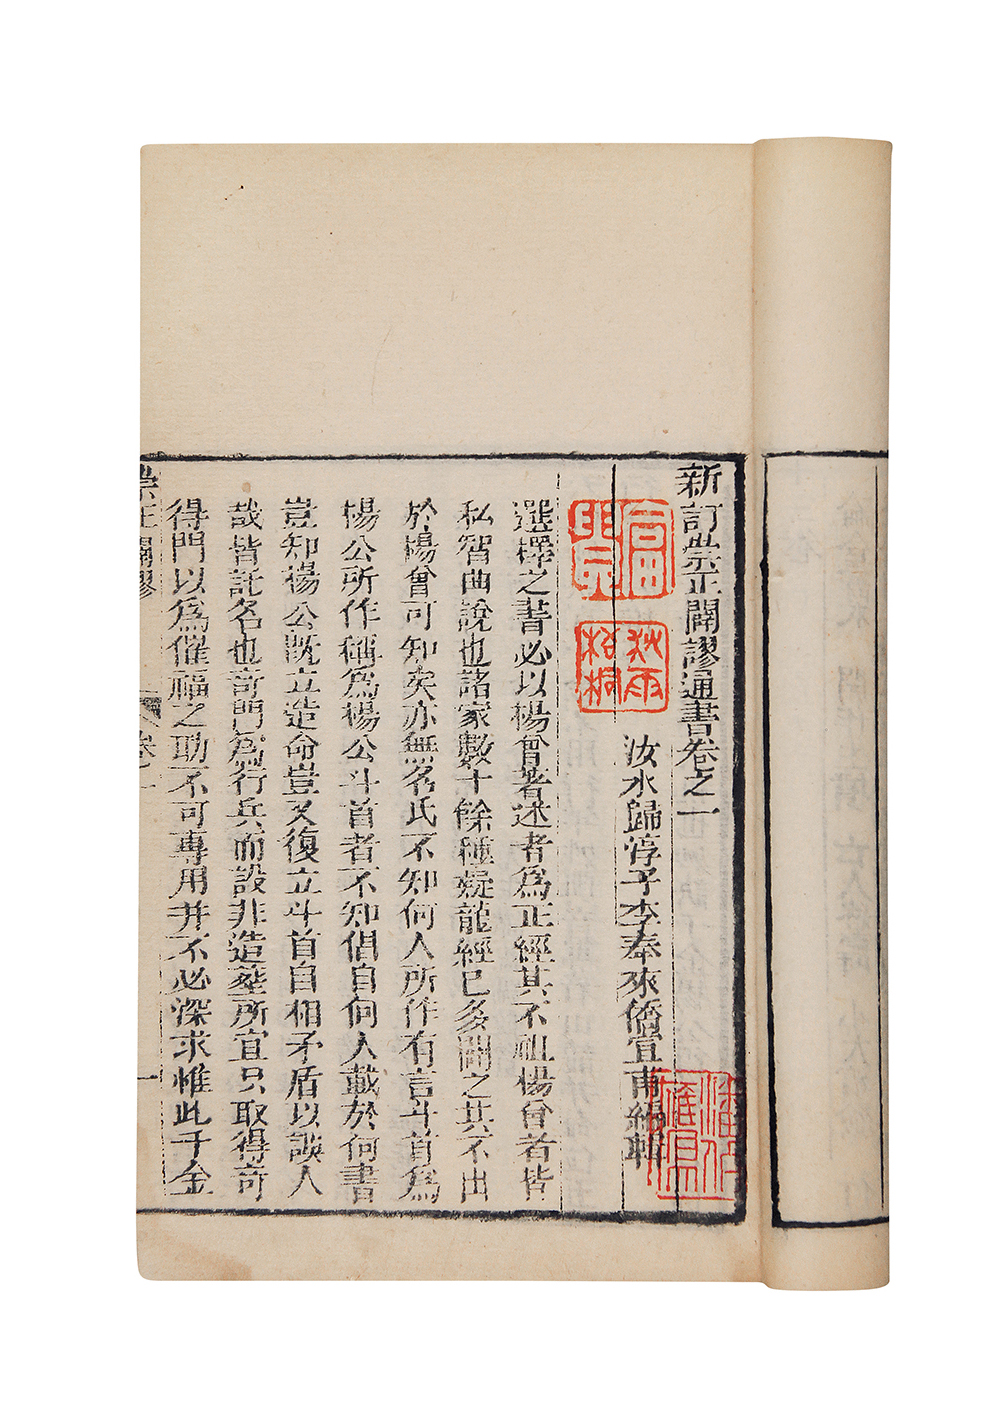 新訂崇正闢謬通書卷之一
汝水歸淳子李奉來僑宜甫緝輯
選擇之書必以楊曾著述者為正經其不祖楊曾者皆
私智曲說也諸家數十餘種疑龍經已多闢之其不出
於楊曾可知矣亦無名氏不知何人所作有言斗首為
楊公所作稱為楊公斗首者不知倡自何人載於何書
豈知楊公既立造命豈又復立斗首自相矛盾以誤人
哉皆託名也奇門為行兵而設非造葬所宜只取得奇
得門以為催福之助不可專用并不必深求惟此千金
崇正闢謬
卷之一
一